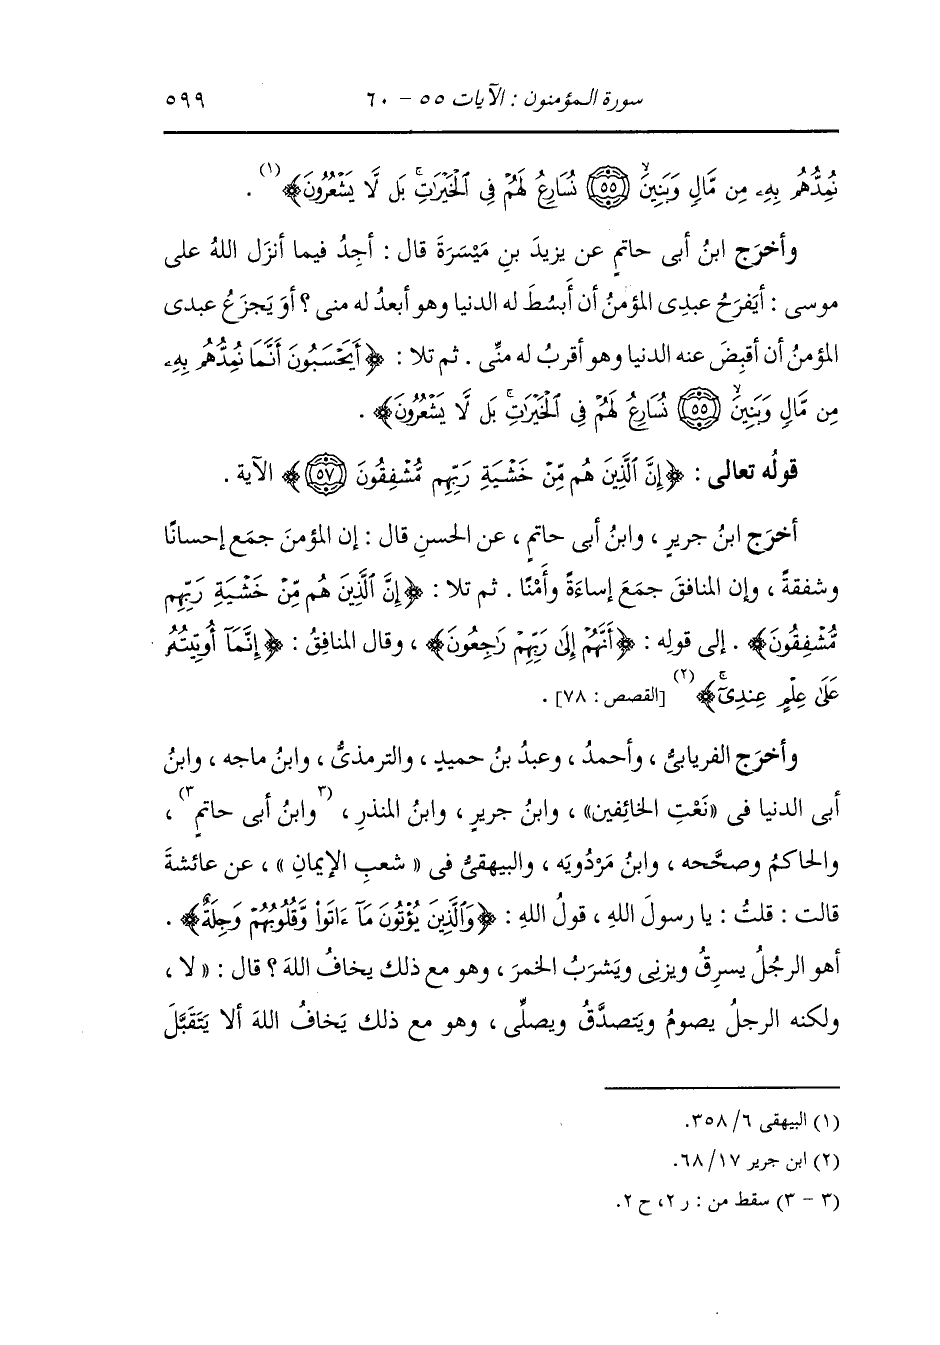 سورة المؤمنون : الآيات ٥٥ - ٦٠ ٥٩٩
نُمِدُّهُم بِهِۦ مِن مَّالٍ وَبَنِينَۙ ﴿٥٥﴾ نُسَارِعُ لَهُمْ فِى ٱلْخَيْرَٰتِۚ بَل لَّا يَشْعُرُونَ﴾(١) .
وأخرَج ابنُ أبى حاتمٍ عن يزيدَ بنِ مَيْسَرَةَ قال : أجِدُ فيما أنزَل اللهُ على
موسى : أيَفرَحُ عبدِى المؤمنُ أن أَبسُطَ له الدنيا وهو أبعدُ له منى ؟ أوَ يَجزَعُ عبدى
المؤمنُ أن أقبِضَ عنه الدنيا وهو أقربُ له منِّى . ثم تلا : ﴿أَيَحْسَبُونَ أَنَّمَا نُمِدُّهُم بِهِۦ
مِن مَّالٍ وَبَنِينَۙ ﴿٥٥﴾ نُسَارِعُ لَهُمْ فِى ٱلْخَيْرَٰتِۚ بَل لَّا يَشْعُرُونَ﴾ .
قولُه تعالى : ﴿إِنَّ ٱلَّذِينَ هُم مِّنْ خَشْيَةِ رَبِّهِم مُّشْفِقُونَ ﴿٥٧﴾﴾ الآية .
أخرَج ابنُ جريرٍ ، وابنُ أبى حاتمٍ ، عن الحسنِ قال : إن المؤمنَ جمَع إحسانًا
وشفقةً ، وإن المنافقَ جمَعَ إساءَةً وأَمْنًا . ثم تلا : ﴿إِنَّ ٱلَّذِينَ هُم مِّنْ خَشْيَةِ رَبِّهِم
مُّشْفِقُونَ﴾ . إلى قولِه : ﴿أَنَّهُمْ إِلَىٰ رَبِّهِمْ رَٰجِعُونَ﴾ ، وقال المنافِقُ : ﴿إِنَّمَآ أُوتِيتُهُۥ
عَلَىٰ عِلْمٍ عِندِىٓۚ﴾(٢) [القصص : ٧٨] .
وأخرَج الفريابىُّ ، وأحمدُ ، وعبدُ بنُ حميدٍ ، والترمذىُّ ، وابنُ ماجه ، وابنُ
أبى الدنيا فى «نَعْتِ الخائِفين» ، وابنُ جريرٍ ، وابنُ المنذرِ ، (٣وابنُ أبى حاتمٍ٣) ،
والحاكمُ وصحَّحه ، وابنُ مَرْدُويَه ، والبيهقىُّ فى « شعبِ الإيمانِ » ، عن عائشةَ
قالت : قلتُ : يا رسولَ اللهِ ، قولُ اللهِ : ﴿وَٱلَّذِينَ يُؤْتُونَ مَآ ءَاتَوا۟ وَّقُلُوبُهُمْ وَجِلَةٌ﴾ .
أهو الرجُلُ يسرِقُ ويزنِى ويَشرَبُ الخمرَ ، وهو مع ذلك يخافُ اللهَ ؟ قال : « لا ،
ولكنه الرجلُ يصومُ ويَتصدَّقُ ويصلِّى ، وهو مع ذلك يَخافُ اللهَ ألا يَتَقَبَّلَ
(١) البيهقى ٦/ ٣٥٨.
(٢) ابن جرير ١٧/ ٦٨.
(٣ - ٣) سقط من : ر ٢، ح ٢.